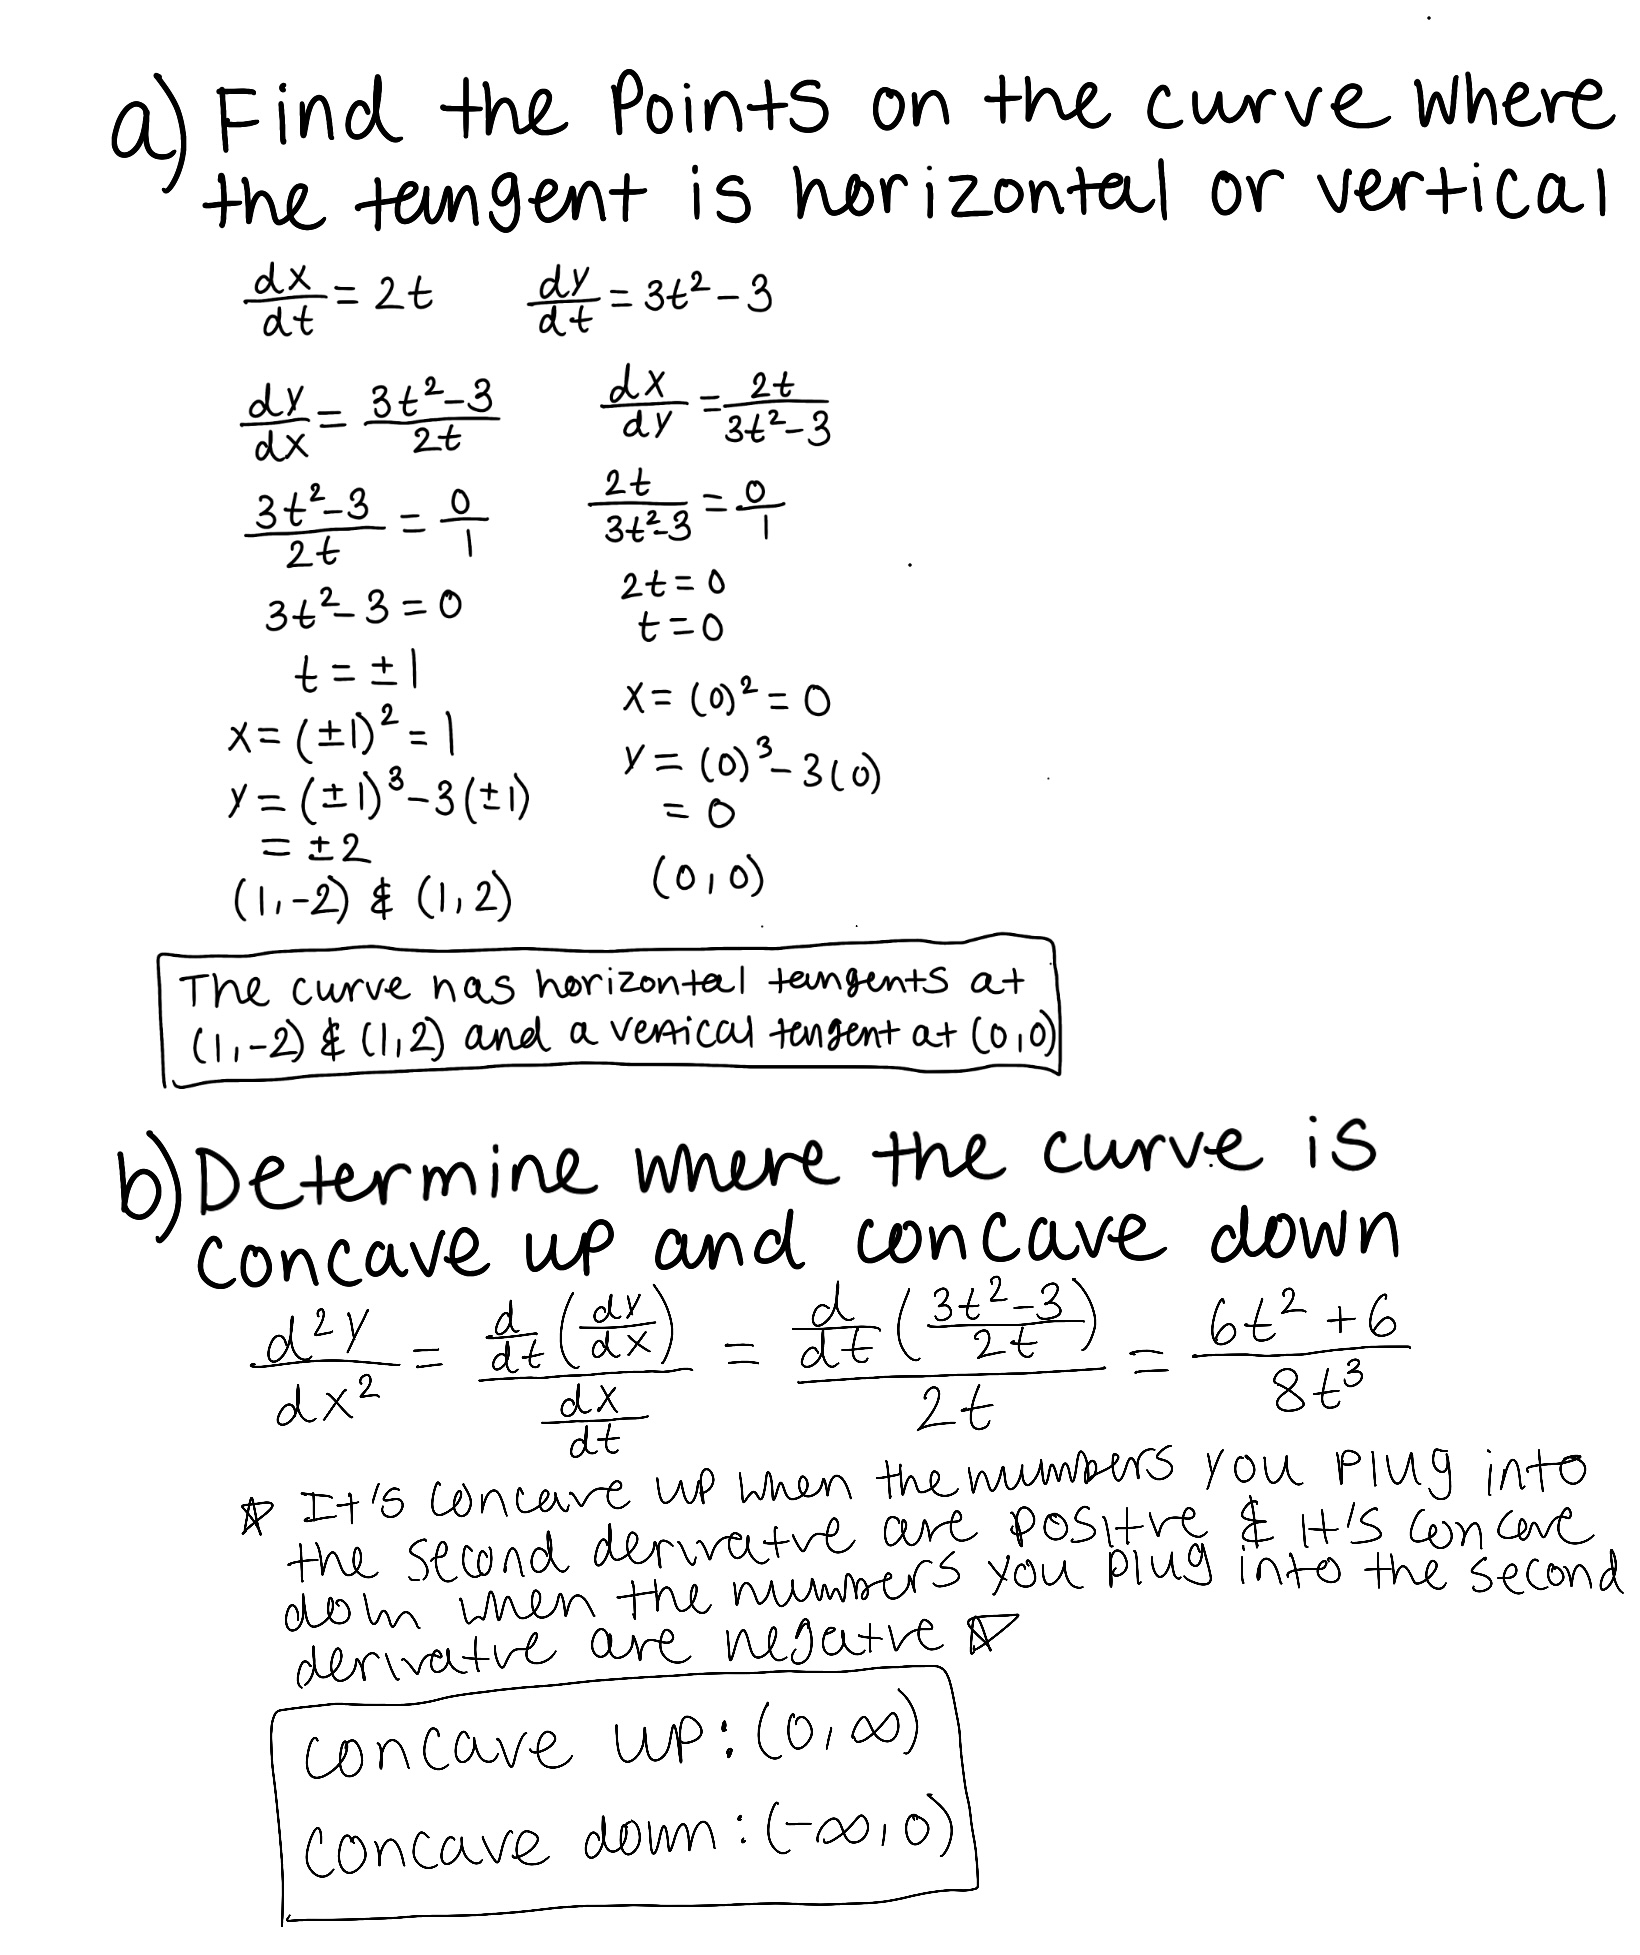 a) Find the Points on the curve where
the tangent is horizontal or vertical
dx/dt = 2t dy/dt = 3t² - 3
dy/dx = 3t²-3/2t dx/dy = 2t/3t²-3
3t²-3/2t = 0/1 2t/3t²-3 = 0/1
3t² - 3 = 0 2t = 0
t = ±1 t = 0
x = (±1)² = 1 x = (0)² = 0
y = (±1)³ - 3(±1) y = (0)³ - 3(0)
= ±2 = 0
(1,-2) & (1,2) (0,0)
The curve has horizontal tangents at
(1,-2) & (1,2) and a vertical tangent at (0,0)
b) Determine where the curve is
concave up and concave down
d²y/dx² = d/dt(dy/dx)/dx/dt = d/dt(3t²-3/2t)/2t = 6t²+6/8t³
☆ It's concave up when the numbers you plug into
the second derivative are positive & it's concave
down when the numbers you plug into the second
derivative are negative ☆
concave up: (0,∞)
concave down: (-∞,0)